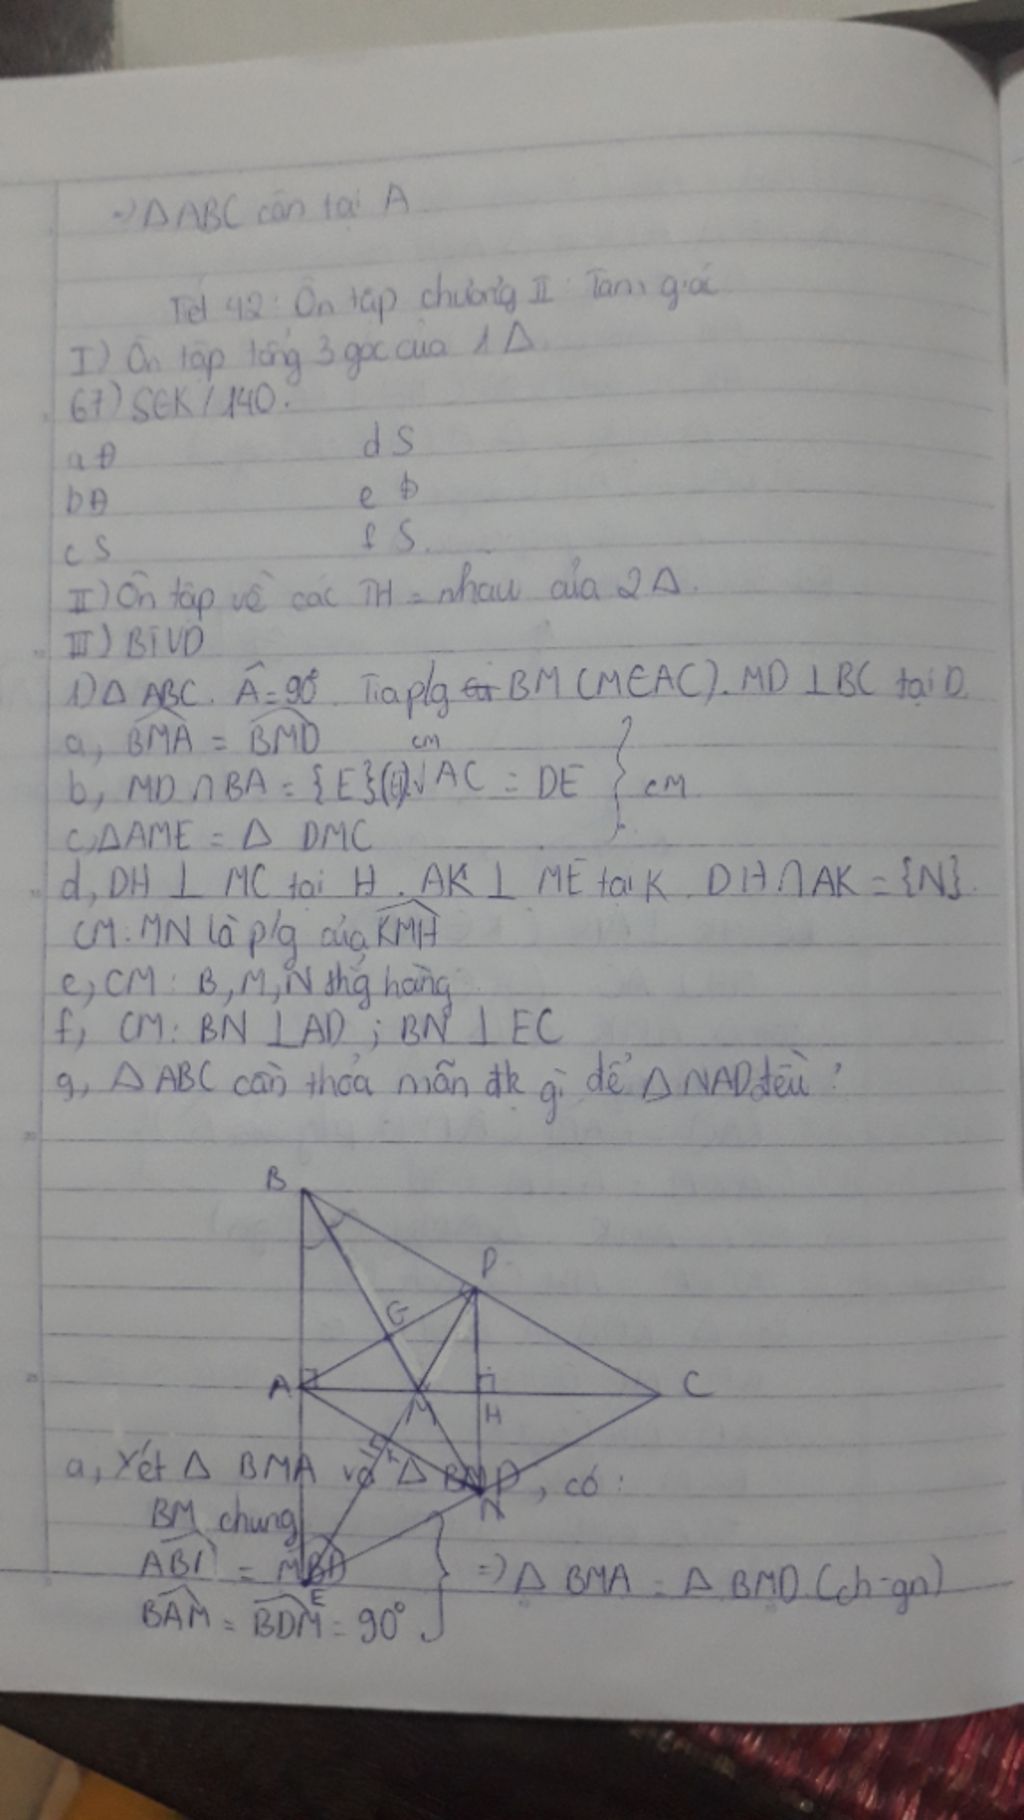 =) Δ ABC cân tại A
Tiết 42: Ôn tập chương II: Tam giác
I) Ôn tập tổng 3 góc của 1 Δ
67) SGK/140.
a Đ d S
b Đ e Đ
c S f S.
II) Ôn tập về các TH = nhau của 2 Δ.
III) BTVD
1) Δ ABC. Â = 90°. Tia p/g BM (M∈AC). MD ⊥ BC tại D.
a, BMA = BMD cm
b, MD ∩ BA = {E} AC = DE } cm
c, ΔAME = Δ DMC
d, DH ⊥ MC tại H. AK ⊥ ME tại K. DH ∩ AK = {N}.
CM: MN là p/g của KMH
e, CM: B, M, N thg hàng
f, CM: BN ⊥ AD ; BN ⊥ EC
g, Δ ABC cần thỏa mãn đk gì để Δ NAD đều ?
B
D
G
A M H C
K
a, Xét Δ BMA và Δ BMD, có:
N
BM chung
= MBD } =) Δ BMA = Δ BMD (ch-gn)
E
BAM = BDM = 90°